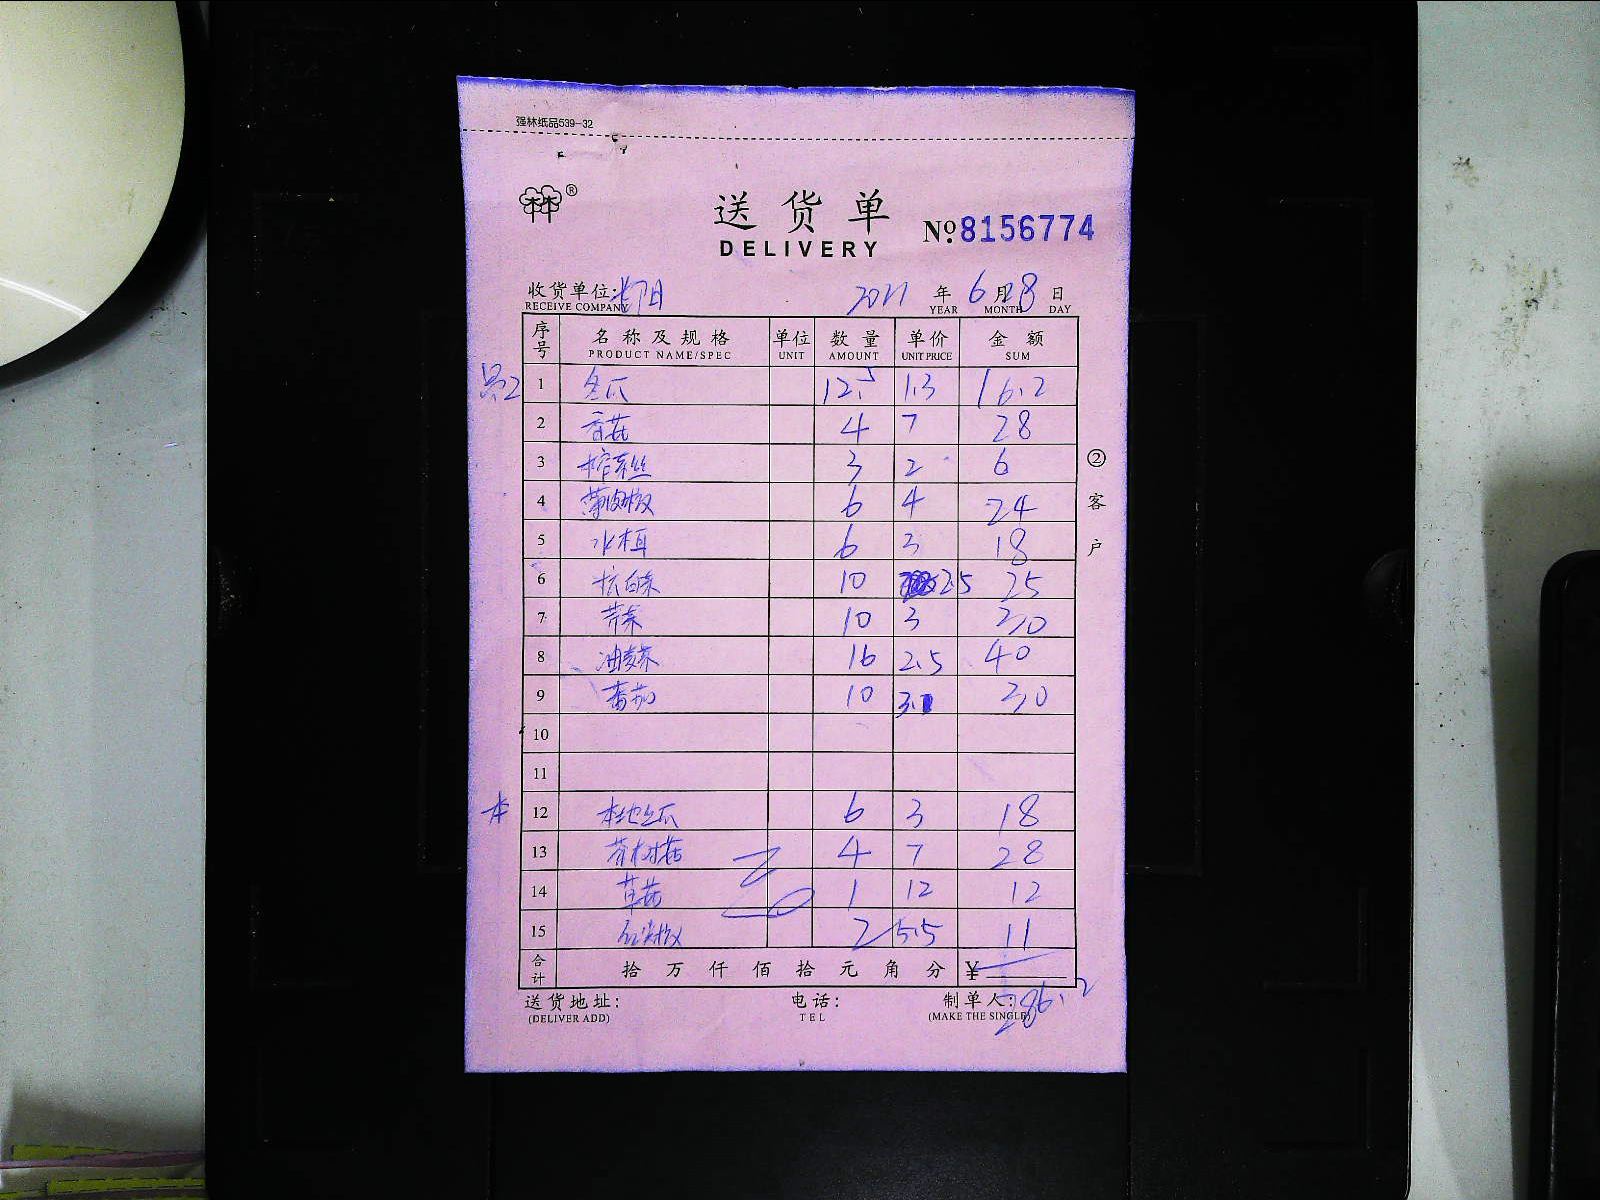 强林纸品539-32
林林®
送货单
DELIVERY
No.8156774
收货单位:
RECEIVE COMPANY
2021 年 6 月 28 日
YEAR MONTH DAY
序号 名称及规格 单位 数量 单价 金额
PRODUCT NAME/SPEC UNIT AMOUNT UNIT PRICE SUM
1 冬瓜 12.5 1.3 16.2
2 香菇 4 7 28
3 榨菜丝 3 2 6
4 薄皮椒 6 4 24
5 水木耳 6 3 18
6 白菜 10 2.5 25
7 芹菜 10 3 30
8 油麦菜 16 2.5 40
9 番茄 10 3. 30
10
11
本 12 本地丝瓜 6 3 18
13 茶树菇 4 7 28
14 草菇 1 12 12
15 红尖椒 2 5.5 11
合计 拾万仟佰拾元角分 ¥
286.2
送货地址: 电话: 制单人:
(DELIVER ADD) TEL (MAKE THE SINGLE)
②客户